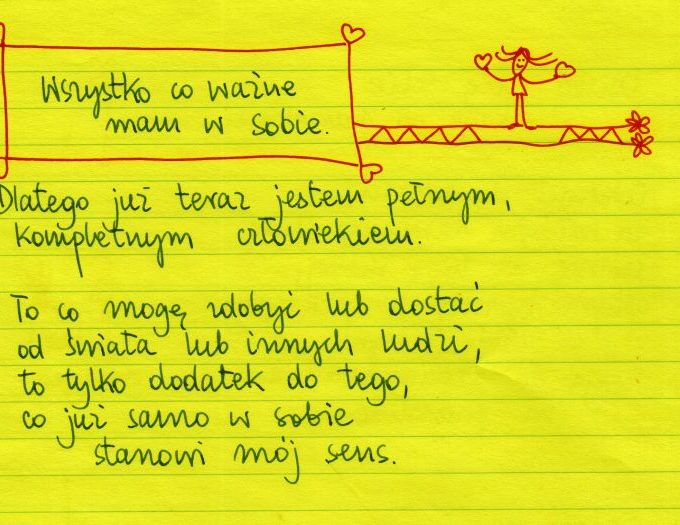 Wszystko co ważne
mam w sobie.
Dlatego już teraz jestem pełnym,
kompletnym człowiekiem.
To co mogę zdobyć lub dostać
od świata lub innych ludzi,
to tylko dodatek do tego,
co już samo w sobie
stanowi mój sens.